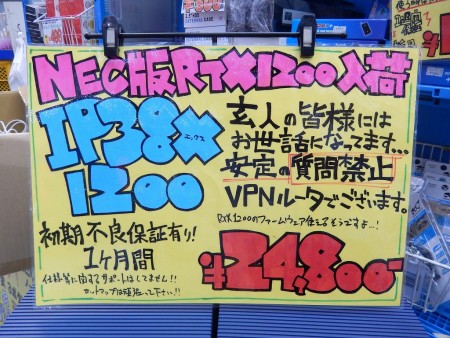 NEC版RTX1200入荷
IP38X
エックス
1200
玄人の皆様には
お世話になってます…
安定の質問禁止
VPNルータでございます。
RTX1200のファームウェア使えるそうですよ…!
初期不良保証有り!
1ヶ月間
仕様等に関するサポートはしてません!!
セットアップは頑張って下さい!!
¥24,800-